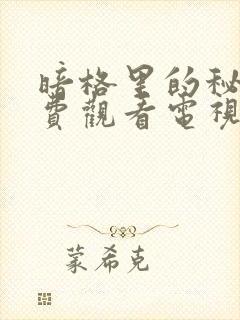 暗格里的秘
費觀看電視
蒙希克